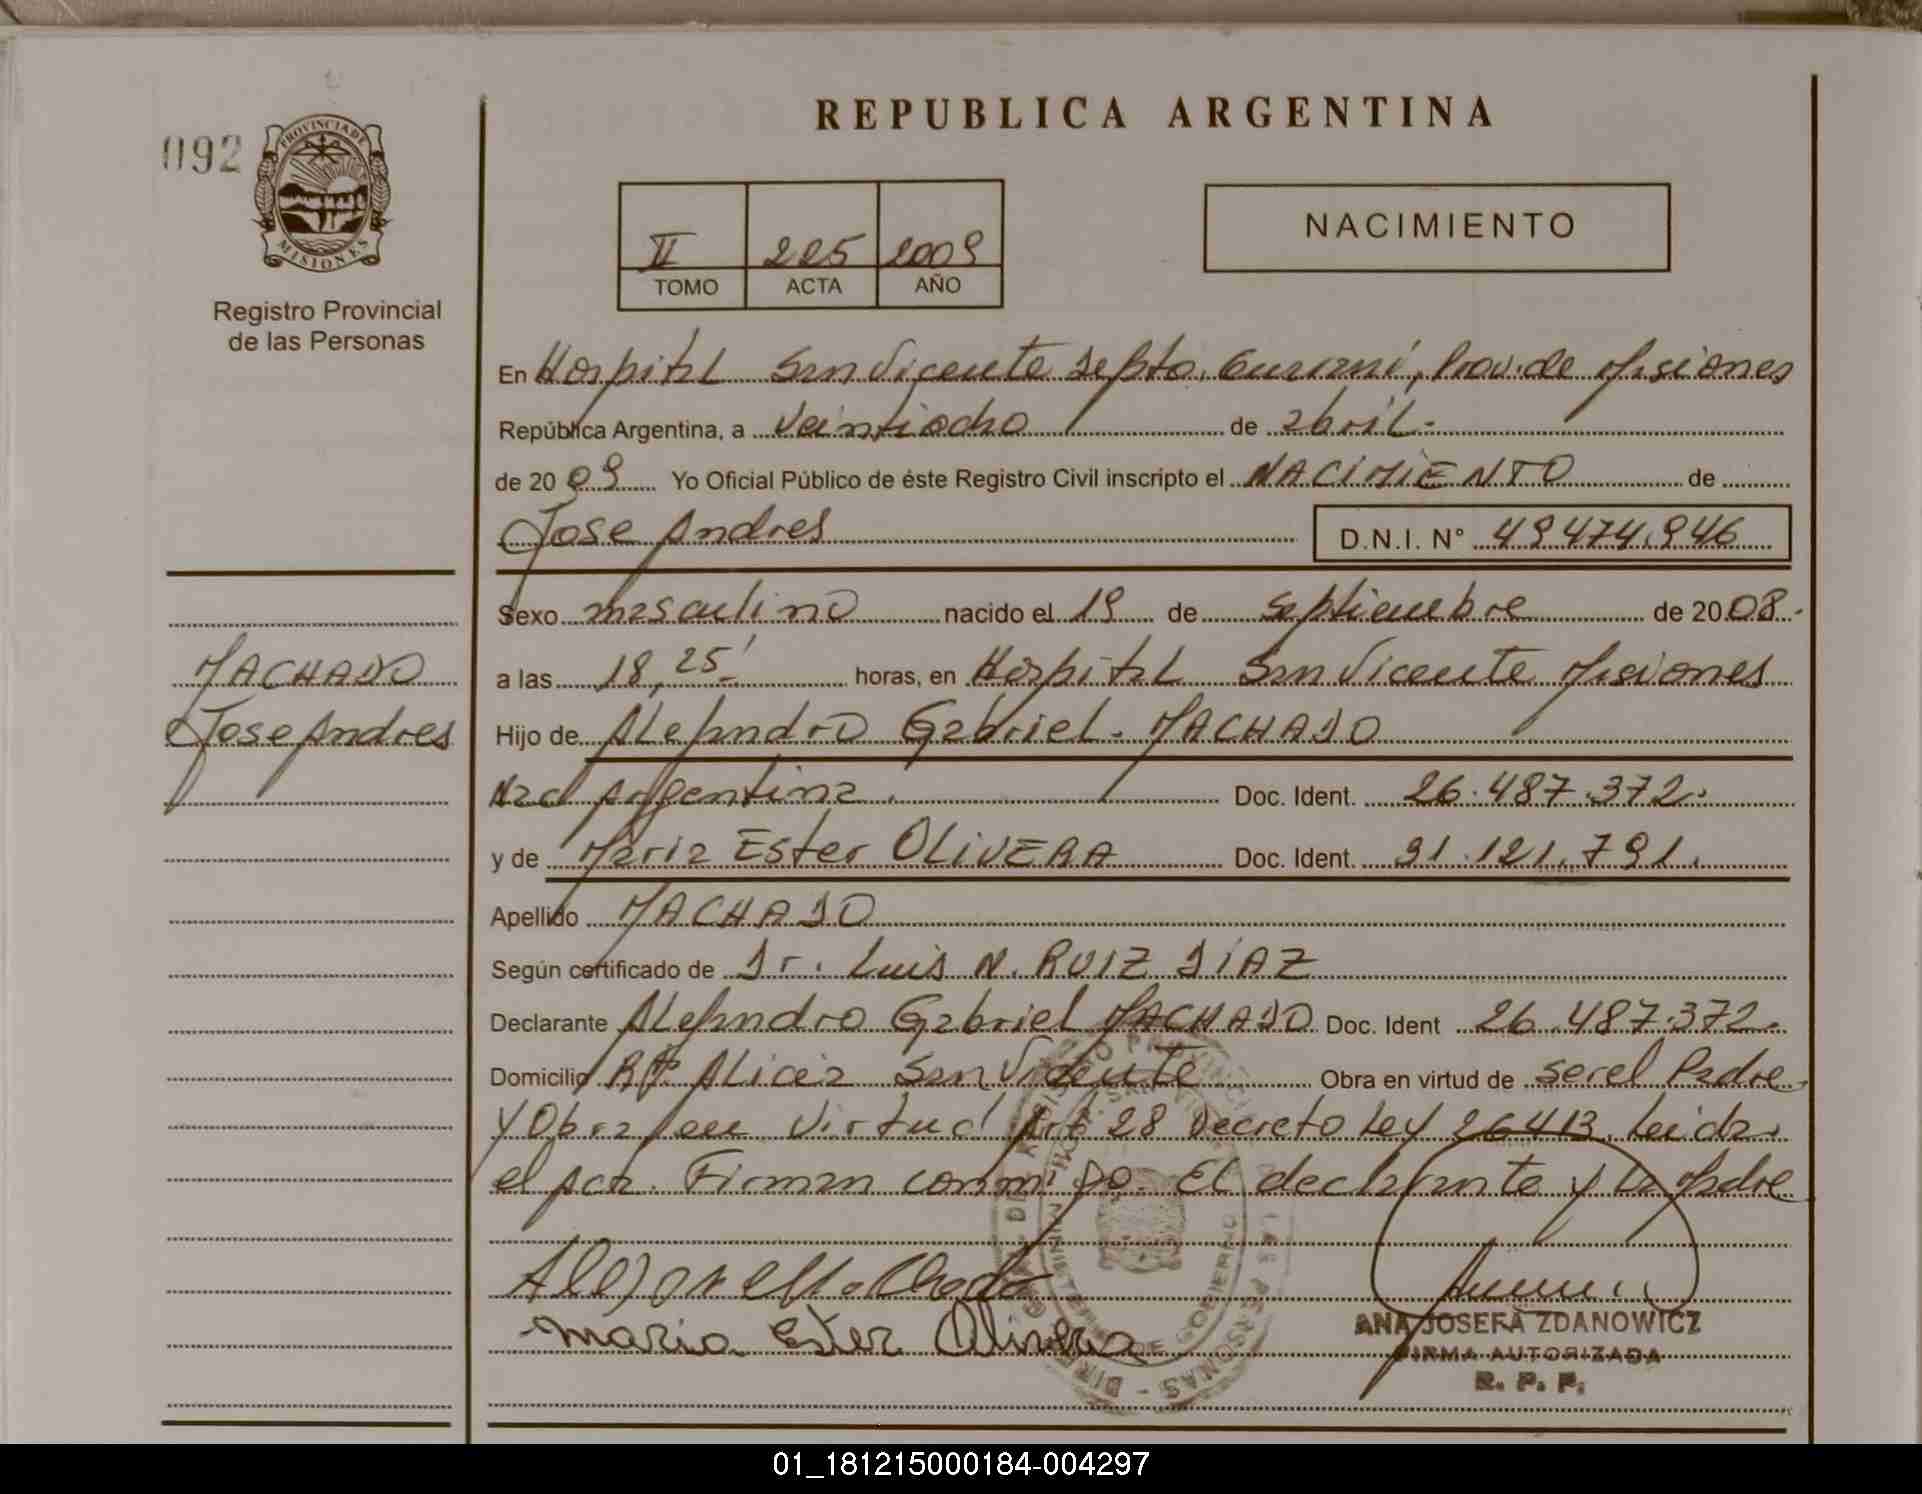 REPUBLICA ARGENTINA
092
PROVINCIA DE MISIONES
Registro Provincial
de las Personas
II 225 2009
TOMO ACTA AÑO
NACIMIENTO
En Hospital San Vicente Depto. Guarani, Prov. de Misiones
República Argentina, a Veintiocho de abril.
de 2009 Yo Oficial Público de éste Registro Civil inscripto el NACIMIENTO de
Jose Andres D.N.I. N° 49474.946
Sexo masculino nacido el 19 de Septiembre de 2008.
a las 18,25' horas, en Hospital San Vicente Misiones
MACHADO
Jose Andres
Hijo de Alejandro Gabriel. MACHADO
Nacl Argentina. Doc. Ident. 26.487.372.
y de Maria Ester OLIVERA Doc. Ident. 31.121.791.
Apellido MACHADO
Según certificado de Dr. Luis N. RUIZ DIAZ
Declarante Alejandro Gabriel MACHADO Doc. Ident 26.487.372.
Domicilio Alicia San Vicente Obra en virtud de ser el Padre.
y Obra en Virtud Art 28 Decreto Ley 26413. Leida.
el acta. Firman conmigo. El declarante y la Madre
Maria Ester Olivera
ANA JOSEFA ZDANOWICZ
FIRMA AUTORIZADA
R. P. P.
01_181215000184-004297